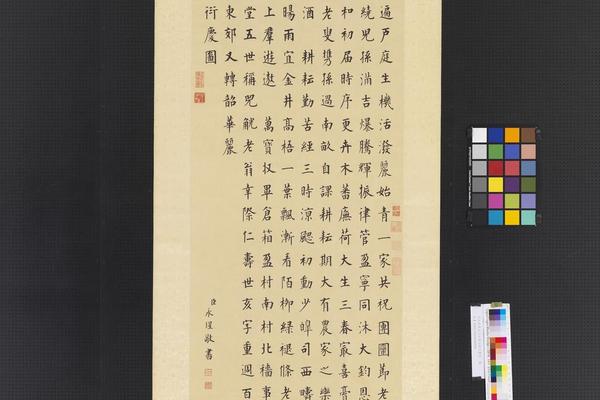 遍戶庭生機活潑麗始青一家共祝團圞節老
繞兒孫滿吉爆騰輝振律管盈寧同沐大鈞恩
和初届時序更卉木蕃廡荷大生三春最喜膏
老叟携孫過南畝自課耕耘期大有農家之樂
酒 耕耘勤苦經三時涼颸初動少皞司西疇
暘雨宜金井高梧一葉飄漸看陌柳綠褪條老
上羣遊遨 萬寶収畢倉箱盈村南村北穡事
堂五世稱兕觥老翁幸際仁壽世亥字重週百
東郊又轉韶華麗
衍慶圖
臣永瑆敬書